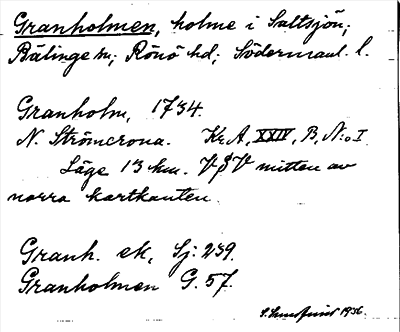 Granholmen, holme i Saltsjön;
Bälinge sn; Rönö hd; Södermanl. l.
Granholm, 1734.
N. Strömcrona. Kr A, XXIV, B, N:o I
Läge 13 km. VSV mitten av
norra kartkanten.
Granh. ek, Sj: 239.
Granholmen G. 57.
1936.